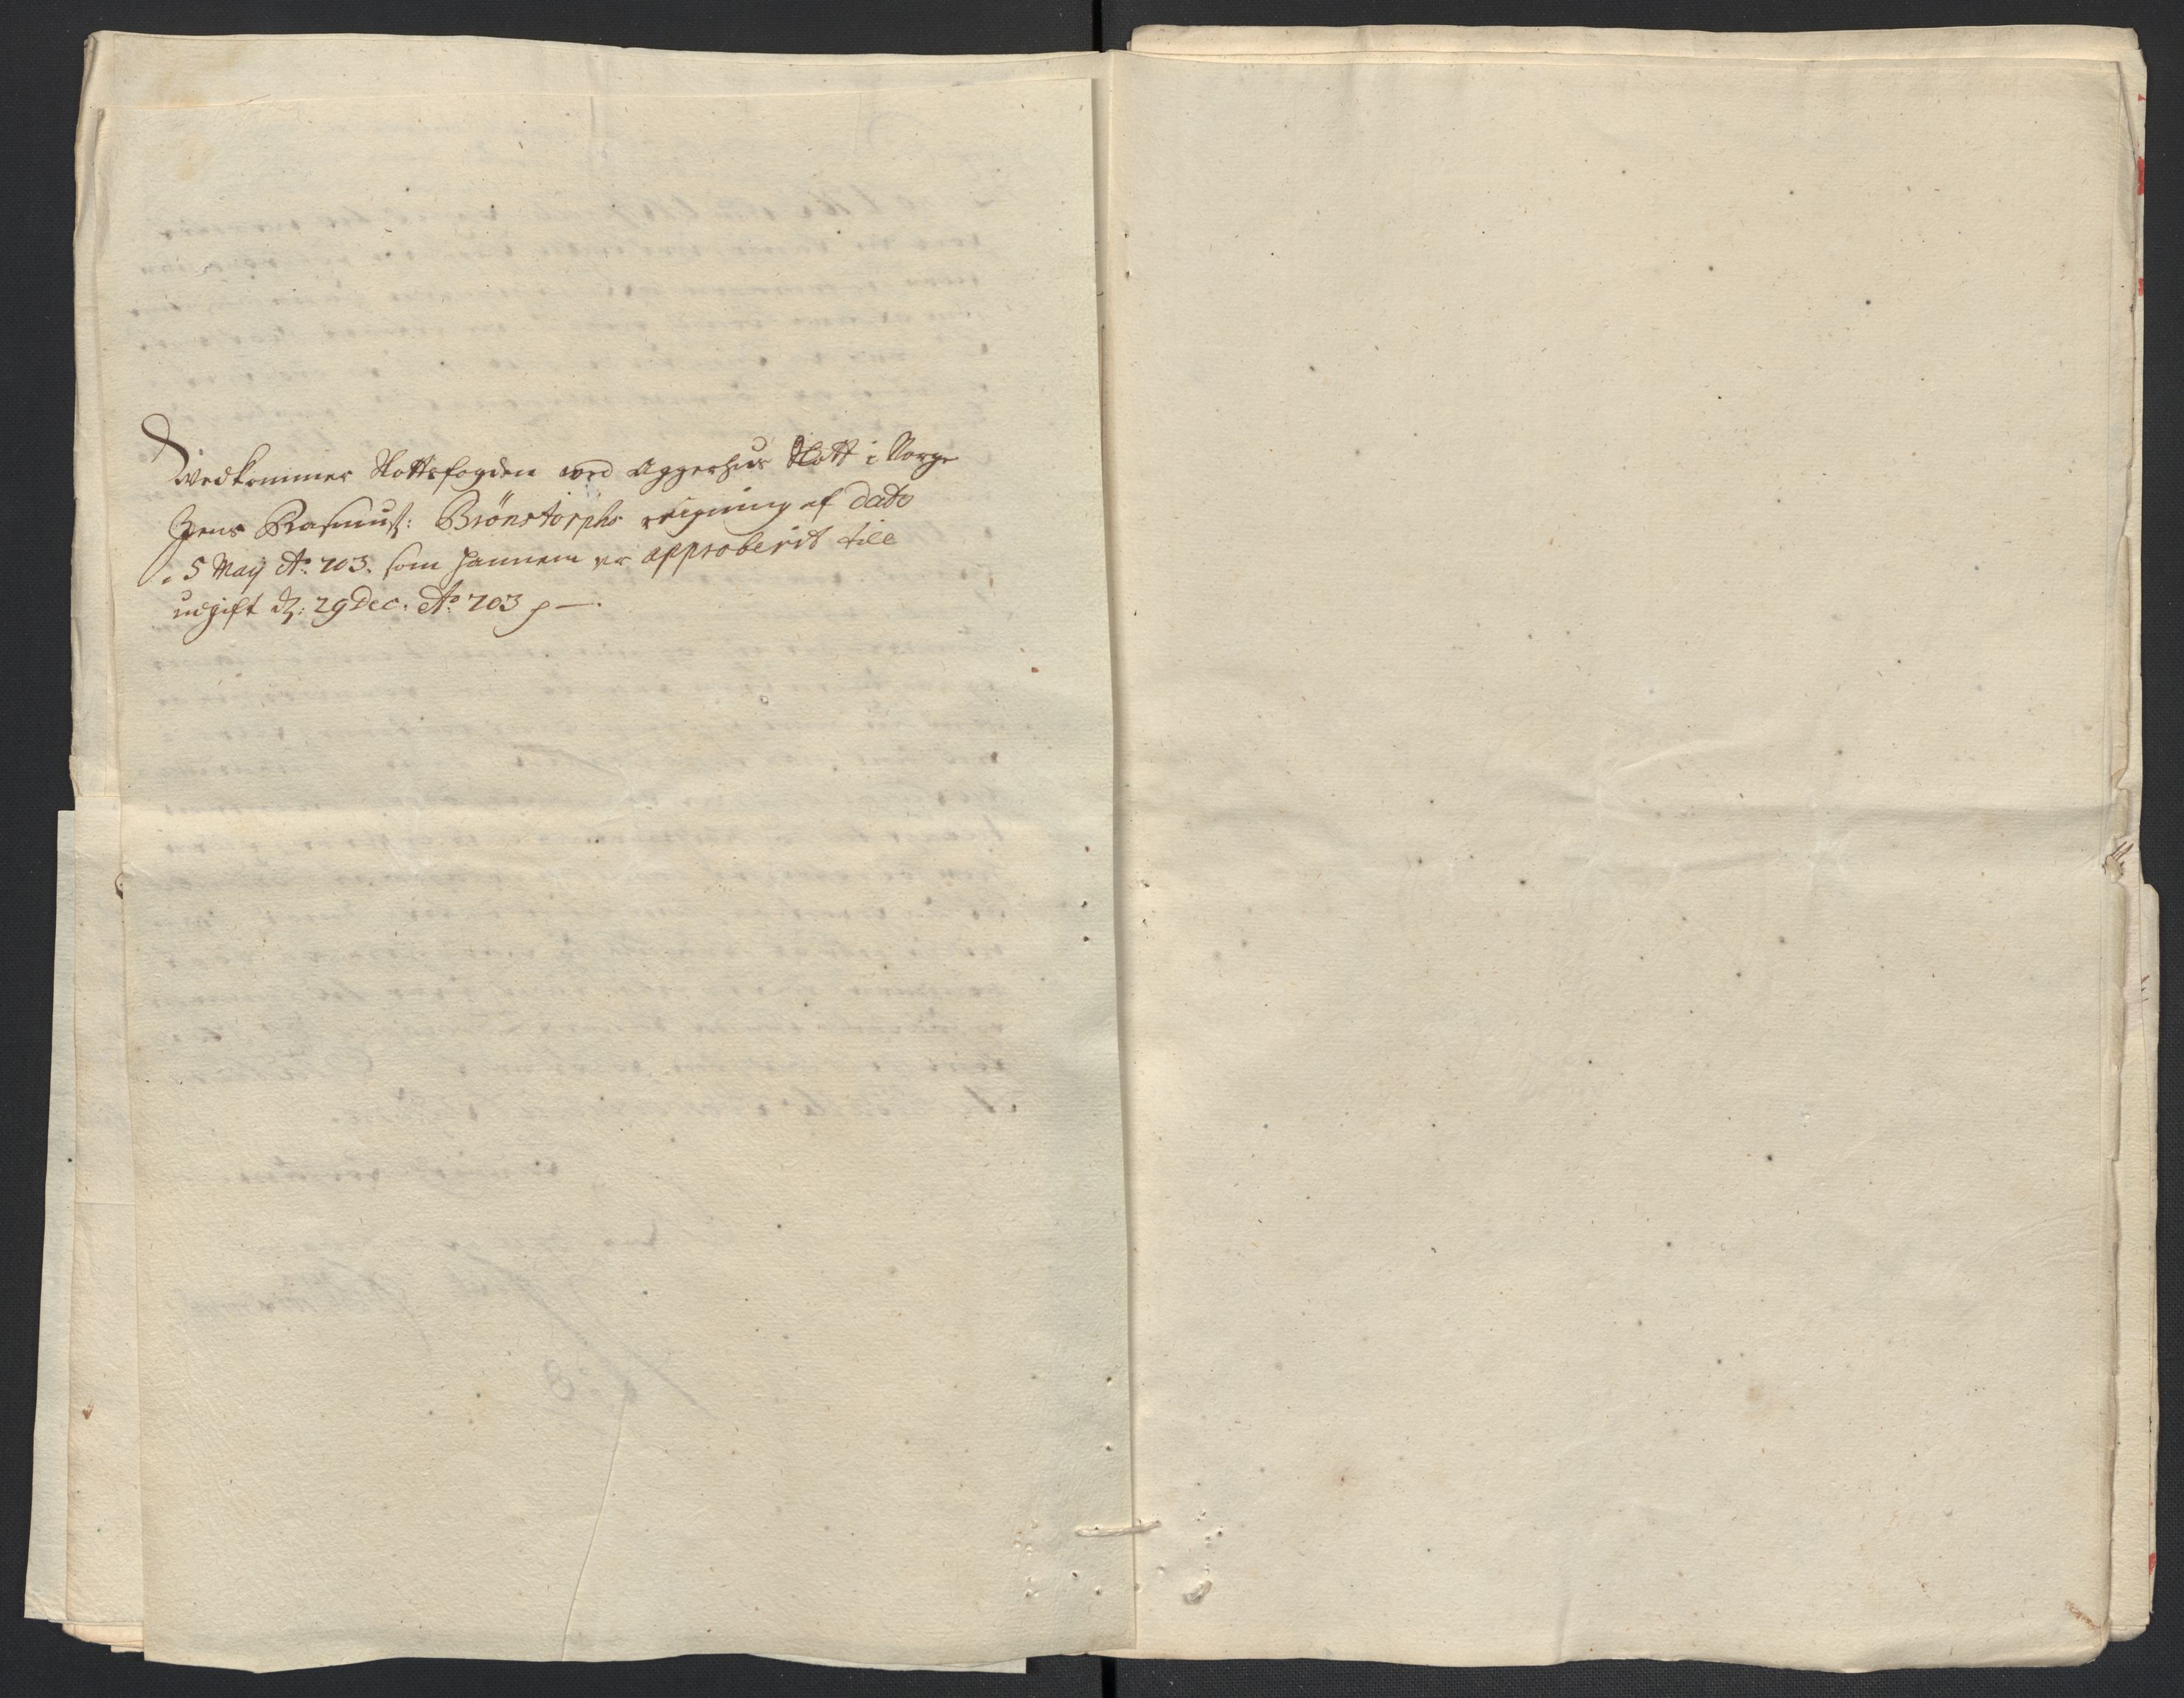 Vedkommer Slottsfogden ved Aggerhus Slott i Norge
Jens Rasmuss: Brönstorphs reigning af dato
5 May Ao. 703. som hannem er approberit till
udgift d: 29 Dec. Ao 703